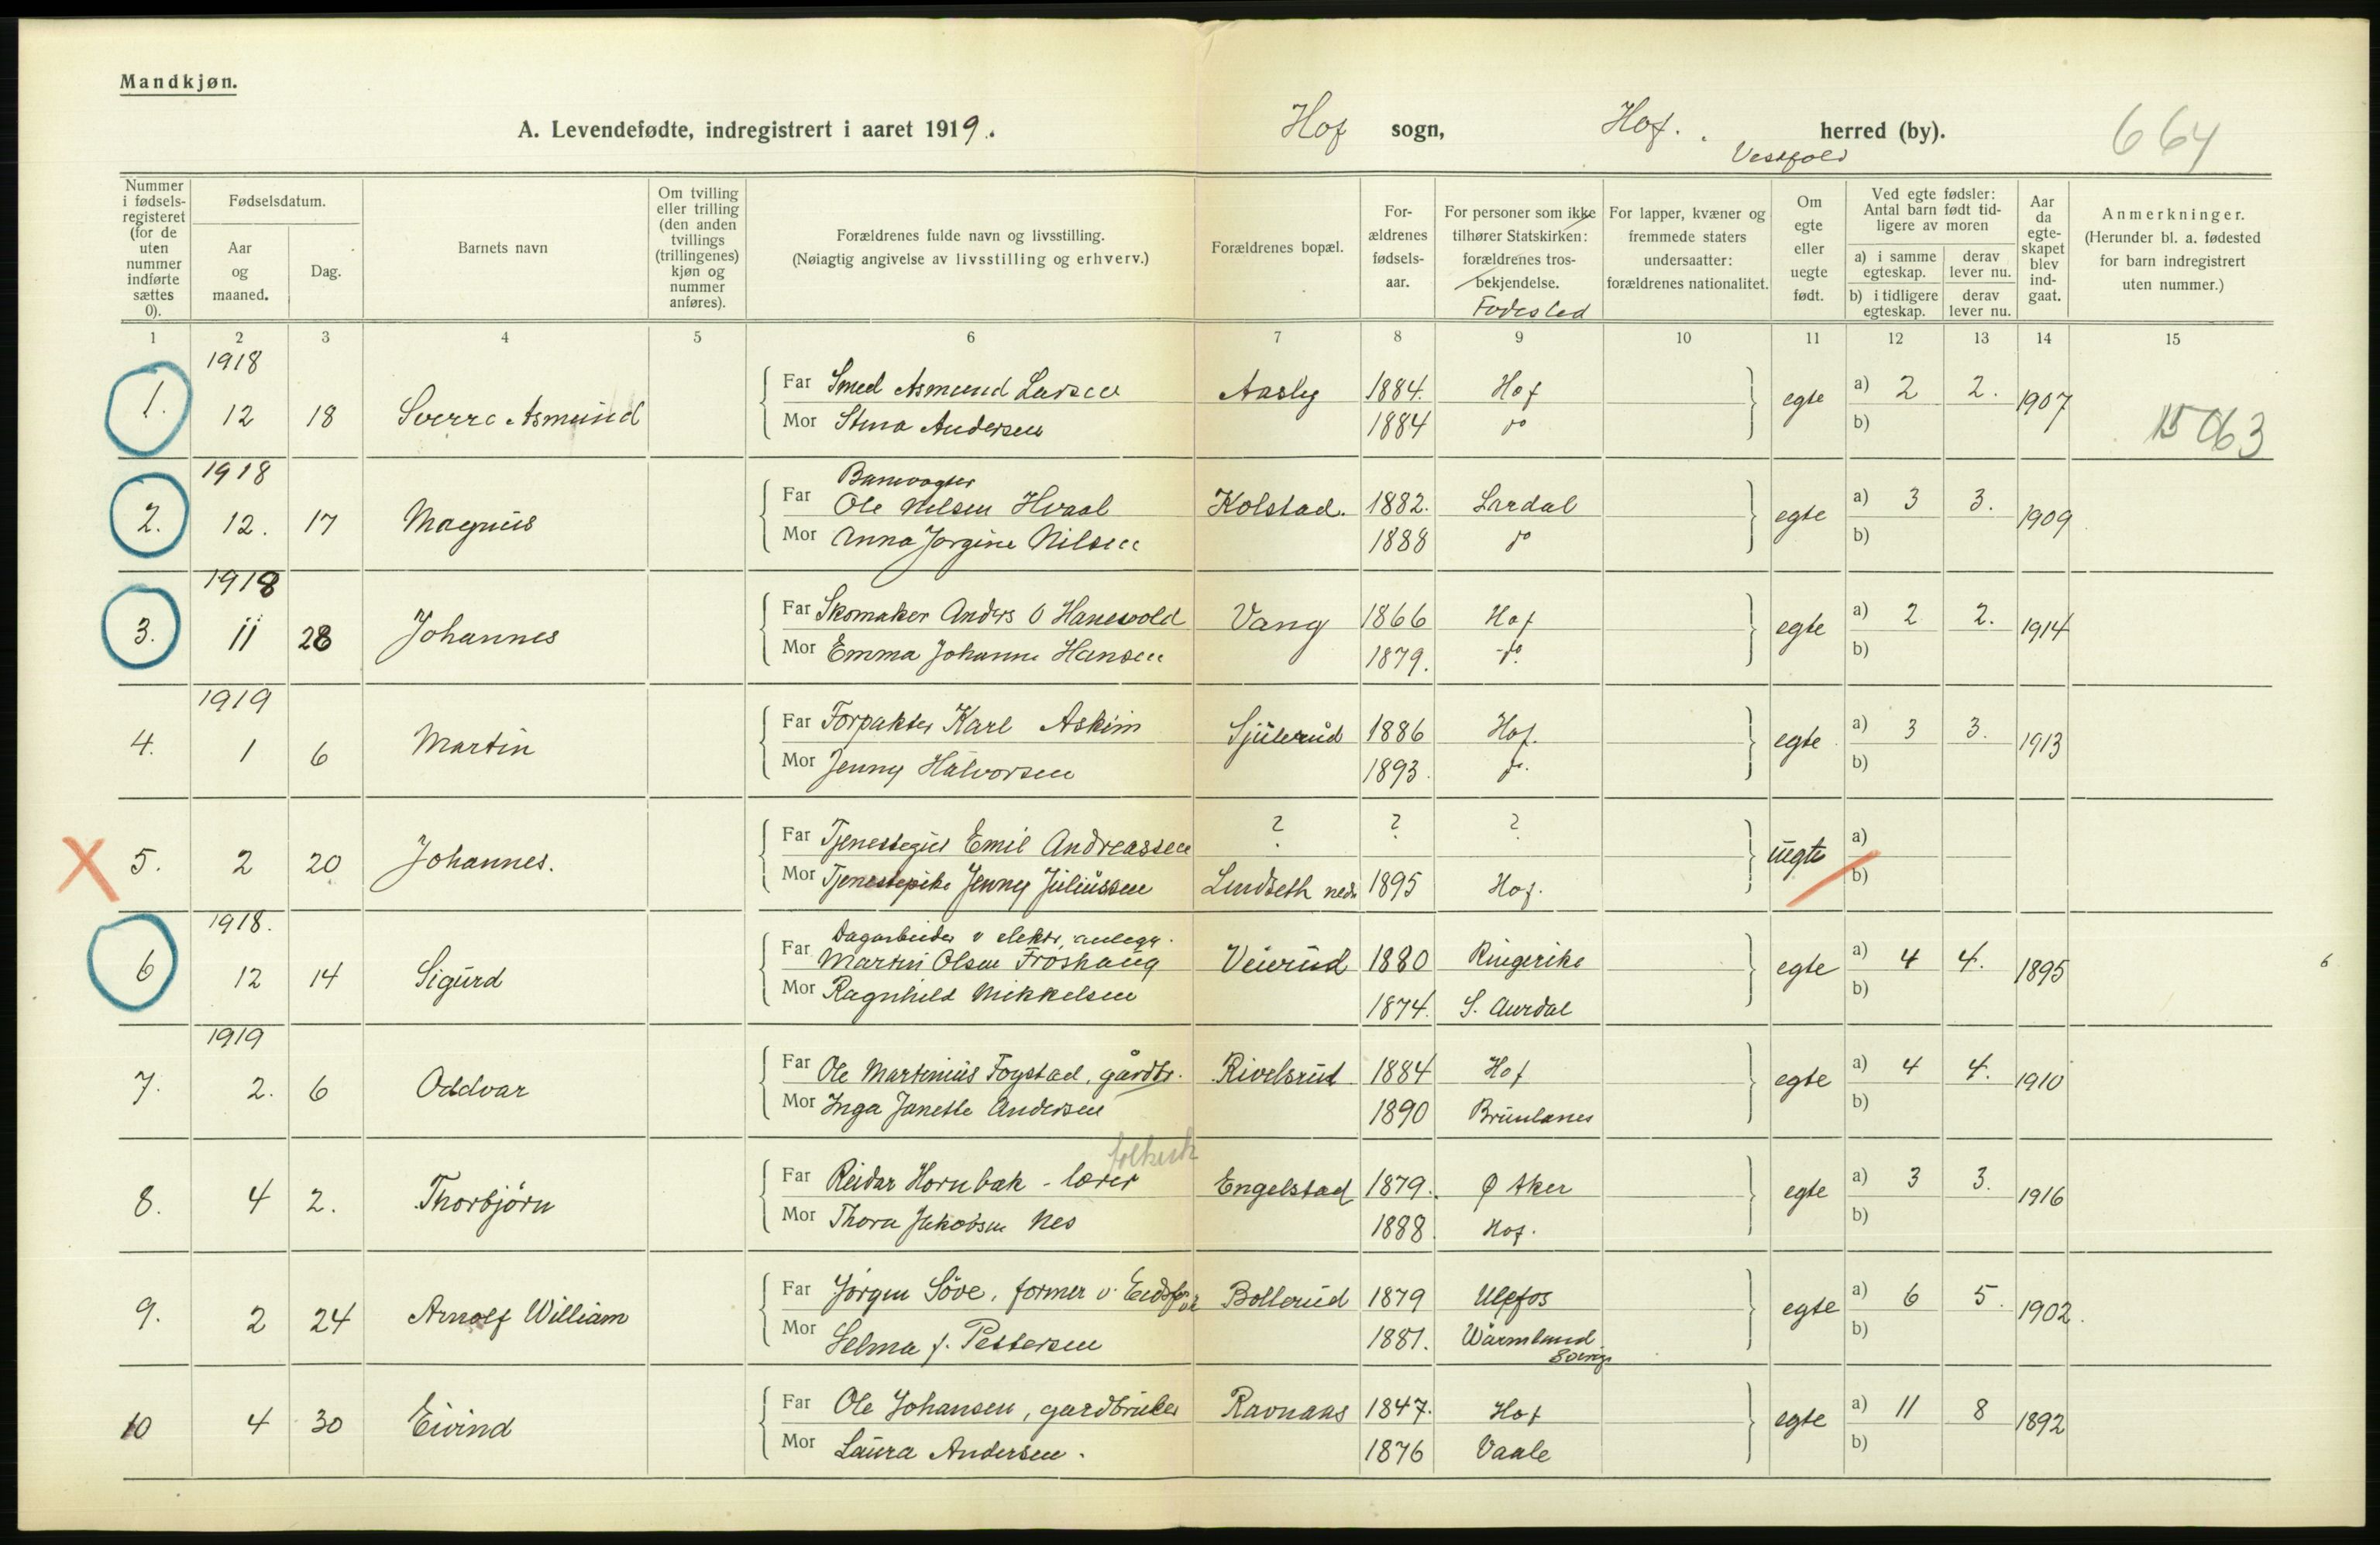 Mandkjøn.
A. Levendefødte, indregistrert i aaret 1919. Hof sogn, Hof. herred (by). 664
Vestfold
Nummer i fødsels-registeret (for de uten nummer indførte sættes 0).
Fødselsdatum.
Aar og maaned.
Dag.
Barnets navn
Om tvilling eller trilling (den anden tvillings (trillingenes) kjøn og nummer anføres).
Forældrenes fulde navn og livsstilling.
(Nøiagtig angivelse av livsstilling og erhverv.)
Forældrenes bopæl.
For-ældrenes fødsels-aar.
For personer som ikke tilhører Statskirken: forældrenes tros-bekjendelse.
Fødested
For lapper, kvæner og fremmede staters undersaatter: forældrenes nationalitet.
Om egte eller uegte født.
Ved egte fødsler: Antal barn født tid-ligere av moren
a) i samme egteskap. derav lever nu.
b) i tidligere egteskap. derav lever nu.
Aar da egte-skapet blev ind-gaat.
Anmerkninger.
(Herunder bl. a. fødested for barn indregistrert uten nummer.)
1 2 3 4 5 6 7 8 9 10 11 12 13 14 15
1918
1. 12 18 Sverre Asmund
Far Smed Asmund Larsen Aasly 1884. Hof egte a) 2 2. 1907
Mor Stina Andersen 1884 do b)
15063
1918
2. 12. 17 Magnus
Banevogter
Far Ole Nilsen Hvaal Kolstad. 1882. Lardal egte a) 3 3. 1909
Mor Anna Jørgine Nilsen 1888 do b)
1918
3. 11 28 Johannes
Far Skomaker Anders O Hanevold Vang 1866 Hof egte a) 2 2. 1914
Mor Emma Johanne Hansen 1879. do b)
1919
4. 1 6 Martin
Far Forpakter Karl Askim Sjulerud 1886 Hof. egte a) 3 3. 1913
Mor Jenny Halvorsen 1893. do. b)
X 5. 2 20 Johannes.
Far Tjenestegut Emil Andreassen ? ? ? uegte a)
Mor Tjenestepike Jenny Juliussen Lindseth nedr 1895 Hof. b)
1918.
6 12 14 Sigurd
Dagarbeider v elektr. anlegg.
Far Martin Olsen Froshaug Veierud 1880 Ringerike egte a) 4 4. 1895 6
Mor Ragnhild Mikkelsen 1874. S. Aurdal b)
1919
7. 2. 6 Oddvar
Far Ole Martinius Fogstad, gårdbr. Rivelsrud 1884 Hof egte a) 4 4. 1910
Mor Inga Janette Andersen 1890 Brunlanes b)
folkesk
8. 4 2. Thorbjörn
Far Reidar Hornbæk - lærer Engelstad 1879. Ø Aker egte a) 3 3. 1916
Mor Thora Jakobsen Nes 1888. Hof. b)
9. 2 24 Arnolf William
Far Jörgen Söve, former v. Eidsfos Bollerud 1879 Ulefos egte a) 6 5. 1902.
Mor Selma f. Pettersen 1881. Wärmland b)
Sverige
10 4 30 Eivind
Far Ole Johansen, gardbruker Ravnaas 1847. Hof egte a) 11 8 1892
Mor Laura Andersen. 1876 Vaale b)